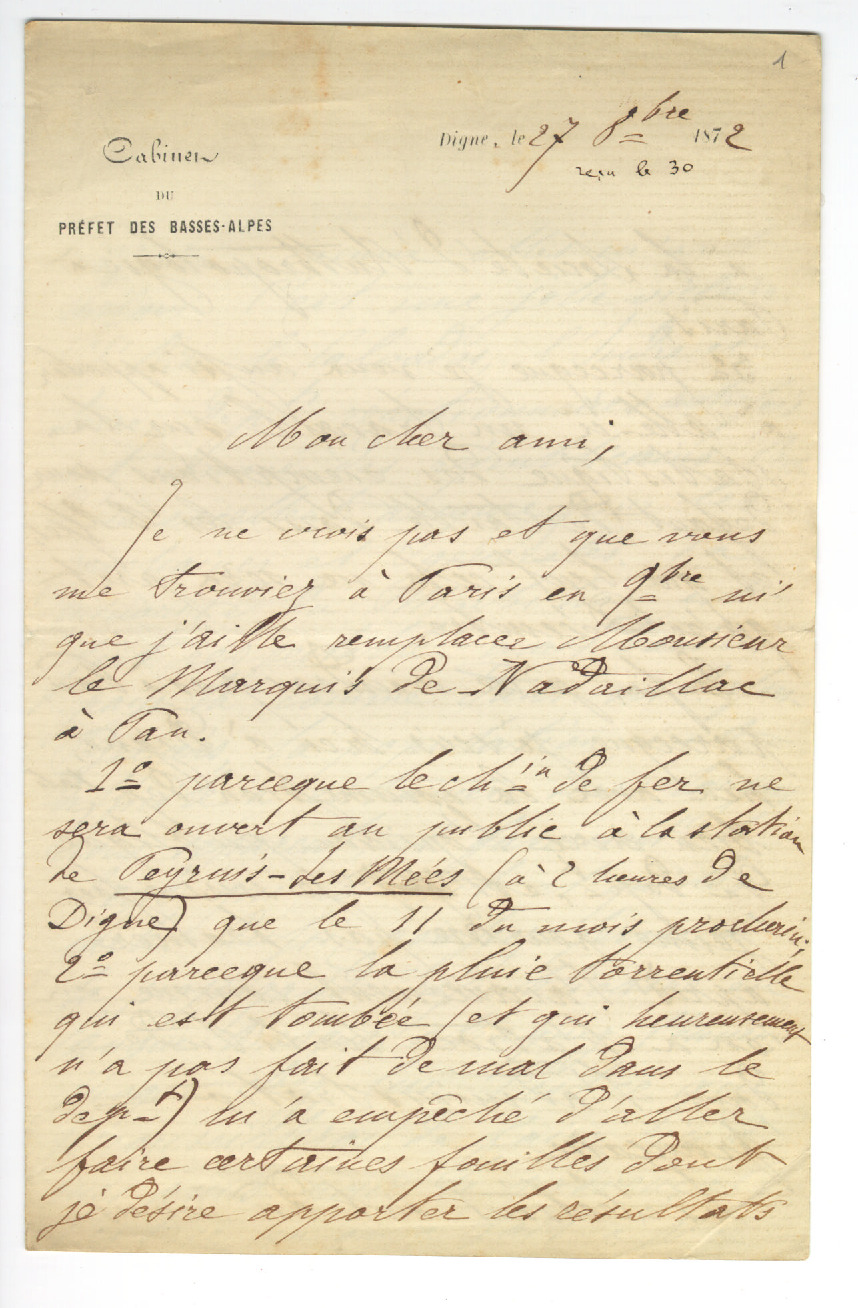 1
Digne, le 27 8bre 1872
reçu le 30
Cabinet
DU
PRÉFET DES BASSES-ALPES
Mon cher ami,
Je ne crois pas et que vous
me trouviez à Paris en 9bre ni
que j'aille remplacer Monsieur
le Marquis de Nadaillac
à Pau.
1o parceque le chin de fer ne
sera ouvert au public à la station
de Peyruis-des Mées (à 2 heures de
Digne) que le 11 du mois prochain;
2o parceque la pluie torrentielle
qui est tombée (et qui heureusement
n'a pas fait de mal dans le
dept) m'a empêché d'aller
faire certaines fouilles dont
je désire apporter les résultats